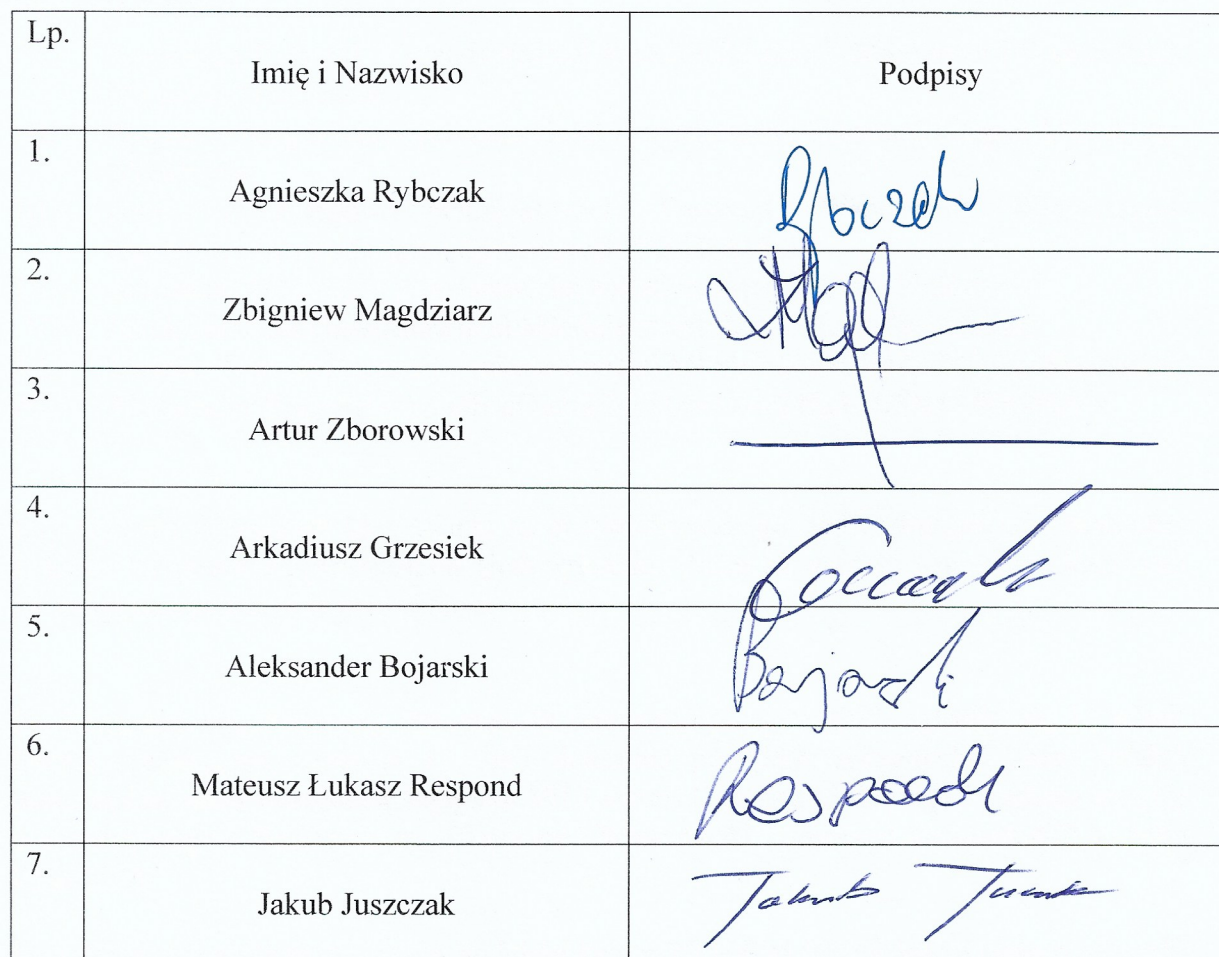 Lp.
Imię i Nazwisko Podpisy
1.
Agnieszka Rybczak Rybczak
2.
Zbigniew Magdziarz
3.
Artur Zborowski
4.
Arkadiusz Grzesiek
5.
Aleksander Bojarski Bojarski
6.
Mateusz Łukasz Respond Respond
7.
Jakub Juszczak Jakub